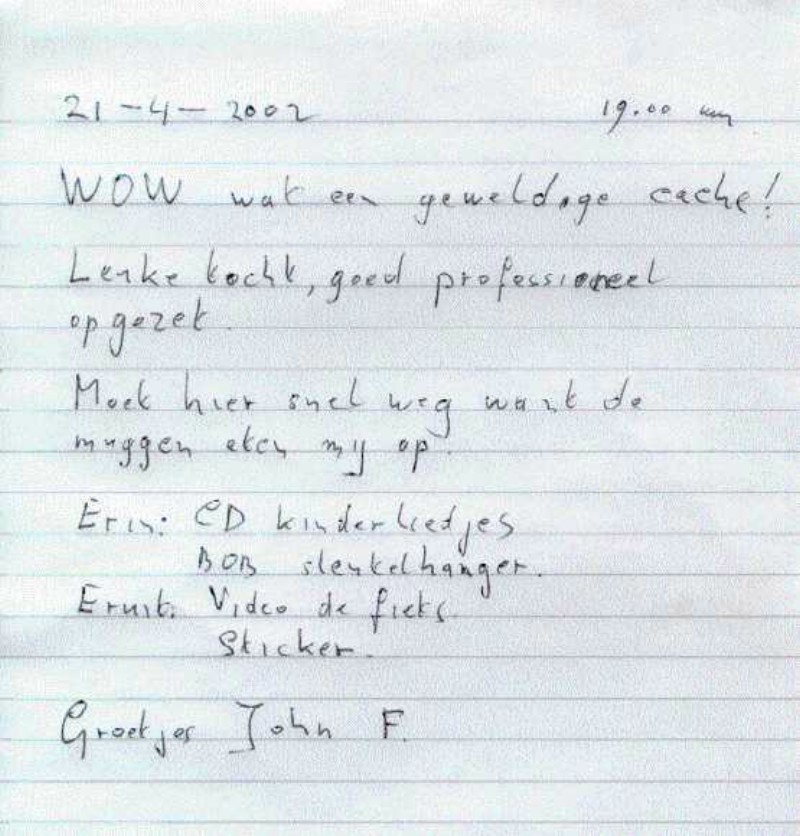 21-4-2002 19.00 uur
WOW wat een geweldige cache!
Leuke tocht, goed professioneel
opgezet.
Moet hier snel weg want de
muggen eten mij op.
Erin: CD kinderliedjes
BOB sleutelhanger.
Eruit: Video de fiets.
Sticker.
Groetjes John F.